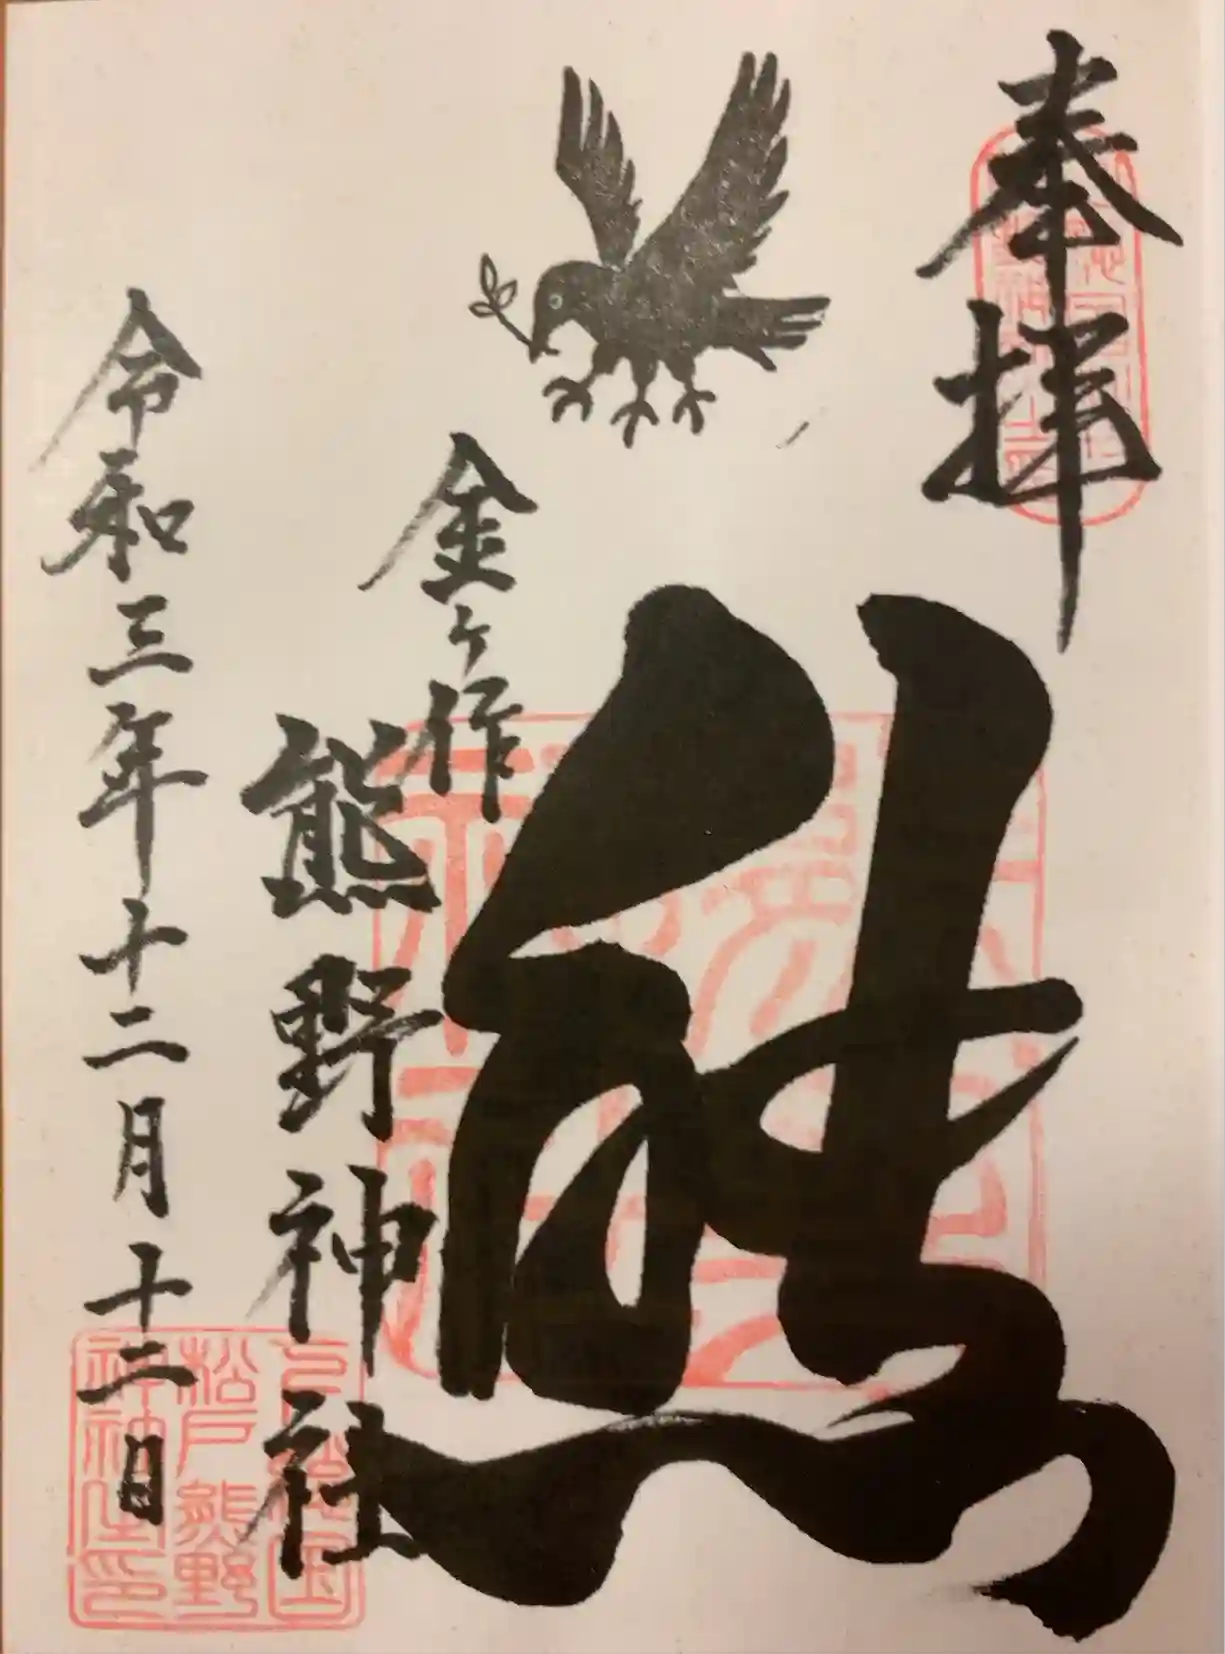 奉拝
熊
金ヶ作
熊野神社
令和三年十二月十二日
松戸熊野